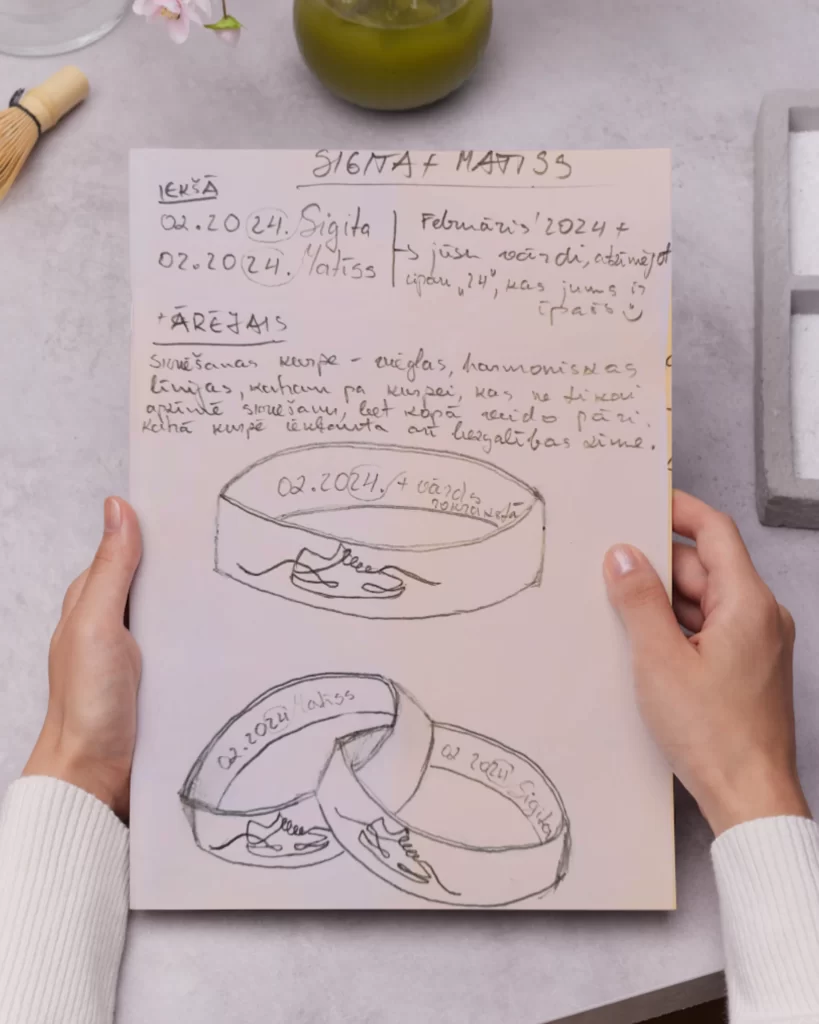 SIGITA + MATISS
IEKŠĀ
02.2024. Sigita
02.2024. Matīss
Februāris' 2024 +
jūsu vārdi, atzīmējot
ciparu "24", kas jums ir
īpašs
ĀRĒJAIS
kurpe - vieglas, harmoniskas
līnijas, katram pa kurpei, kas ne tikai
apzīmē, bet kopā veido pāri.
Katrā kurpē iekļauta arī bezgalības zīme.
02.2024. + vārds
rokrakstā
02.2024 Matīss
02 2024 Sigita